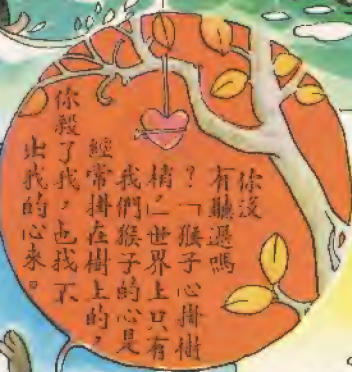 你沒
有聽過嗎
？「猴子心掛樹
梢」世界上只有
我們猴子的心是
經常掛在樹上的，
你殺了我，也找不
出我的心來。